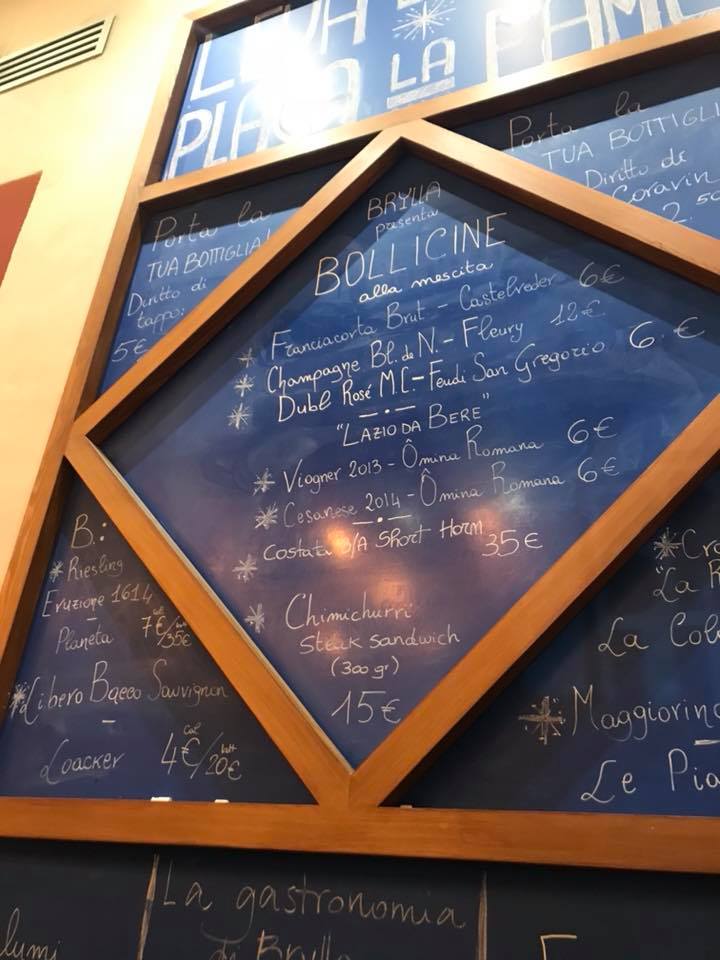 PLACA LA FAME
Porta la
TUA BOTTIGLIA!
Diritto di
tappo:
5€
Porta la
TUA BOTTIGLI
Diritto di
Coravin
2.50
BRYLLA
presenta
BOLLICINE
alla mescita
* Franciacorta Brut - Castelveder 6€
* Champagne Bl. de N. - Fleury 12€
* Dubl Rosé M.C. - Feudi San Gregorio 6 €
"LAZIO DA BERE"
* Viogner 2013 - Ômina Romana 6€
* Cesanese 2014 - Ômina Romana 6€
* Costata S/A Short Horn 35€
* Chimichurri
Steak Sandwich
(300 gr)
15€
B.:
* Riesling
Eruzione 1614
Planeta 7€/35€
* Libero Bacco Sauvignon
-
Loacker 4€ cal/20€ bott
* Cro
"La R
La Col
* Maggiorin
Le Pia
lumi
La gastronomia
di Brylla